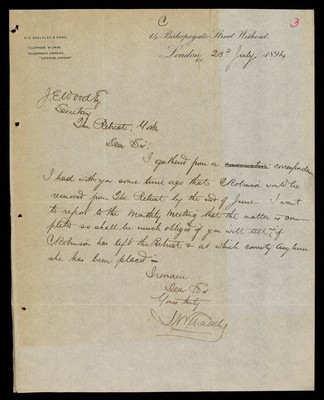 C
3
14 Bishopsgate Street Without.
TELEPHONE Nº
TELEGRAPHIC ADDRESS,
LONDON."
London, 23rd July, 1894
J E Wood Esq
Secretary
The Retreat. York
Dear Sir:
I gathered from a correspondence
I had with you some time ago that C Robinson would be
removed from The Retreat by the of June. I want
to report to the Monthly Meeting that the matter is com-
plete so shall be much obliged if you will tell if
C Robinson has left the Retreat & at which county Asylum
she has been placed in
I remain
Dear Sir
Yours truly